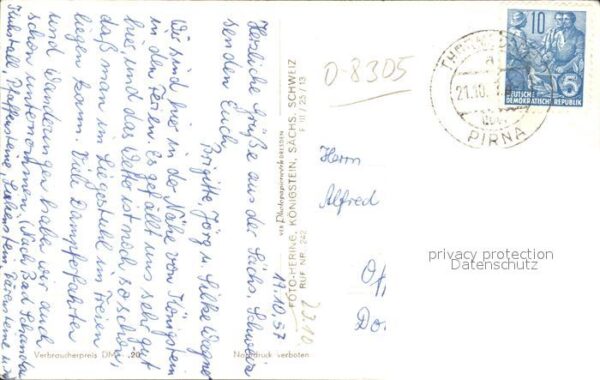 Herzliche Grüße aus der Sächs. Schweiz
senden Euch
Brigitte, Jörg u. Silke Wagner
17.10.57
Wir sind hier in der Nähe von Königstein
in den Ferien. Es gefällt uns sehr gut
hier, und das Wetter ist noch so schön,
daß man im Liegestuhl im Freien
liegen kann. Viele Dampferfahrten
und Wanderungen habe wir auch
schon unternommen. (Nach Bad Schandau
Kuhstall, Pfaffenstein, Lilienstein, Bärensteine u.
Verbraucherpreis DM -.20
Nachdruck verboten
VEB Photopapierwerk DRESDEN
FOTO-HERING, KÖNIGSTEIN, SÄCHS. SCHWEIZ
RUF NR. 242 F III / 25 / 13
0-8305
2310
Herrn
Alfred
10
DEUTSCHE
DEMOKRATISCHE REPUBLIK
a
21.10.
PIRNA
privacy protection
Datenschutz